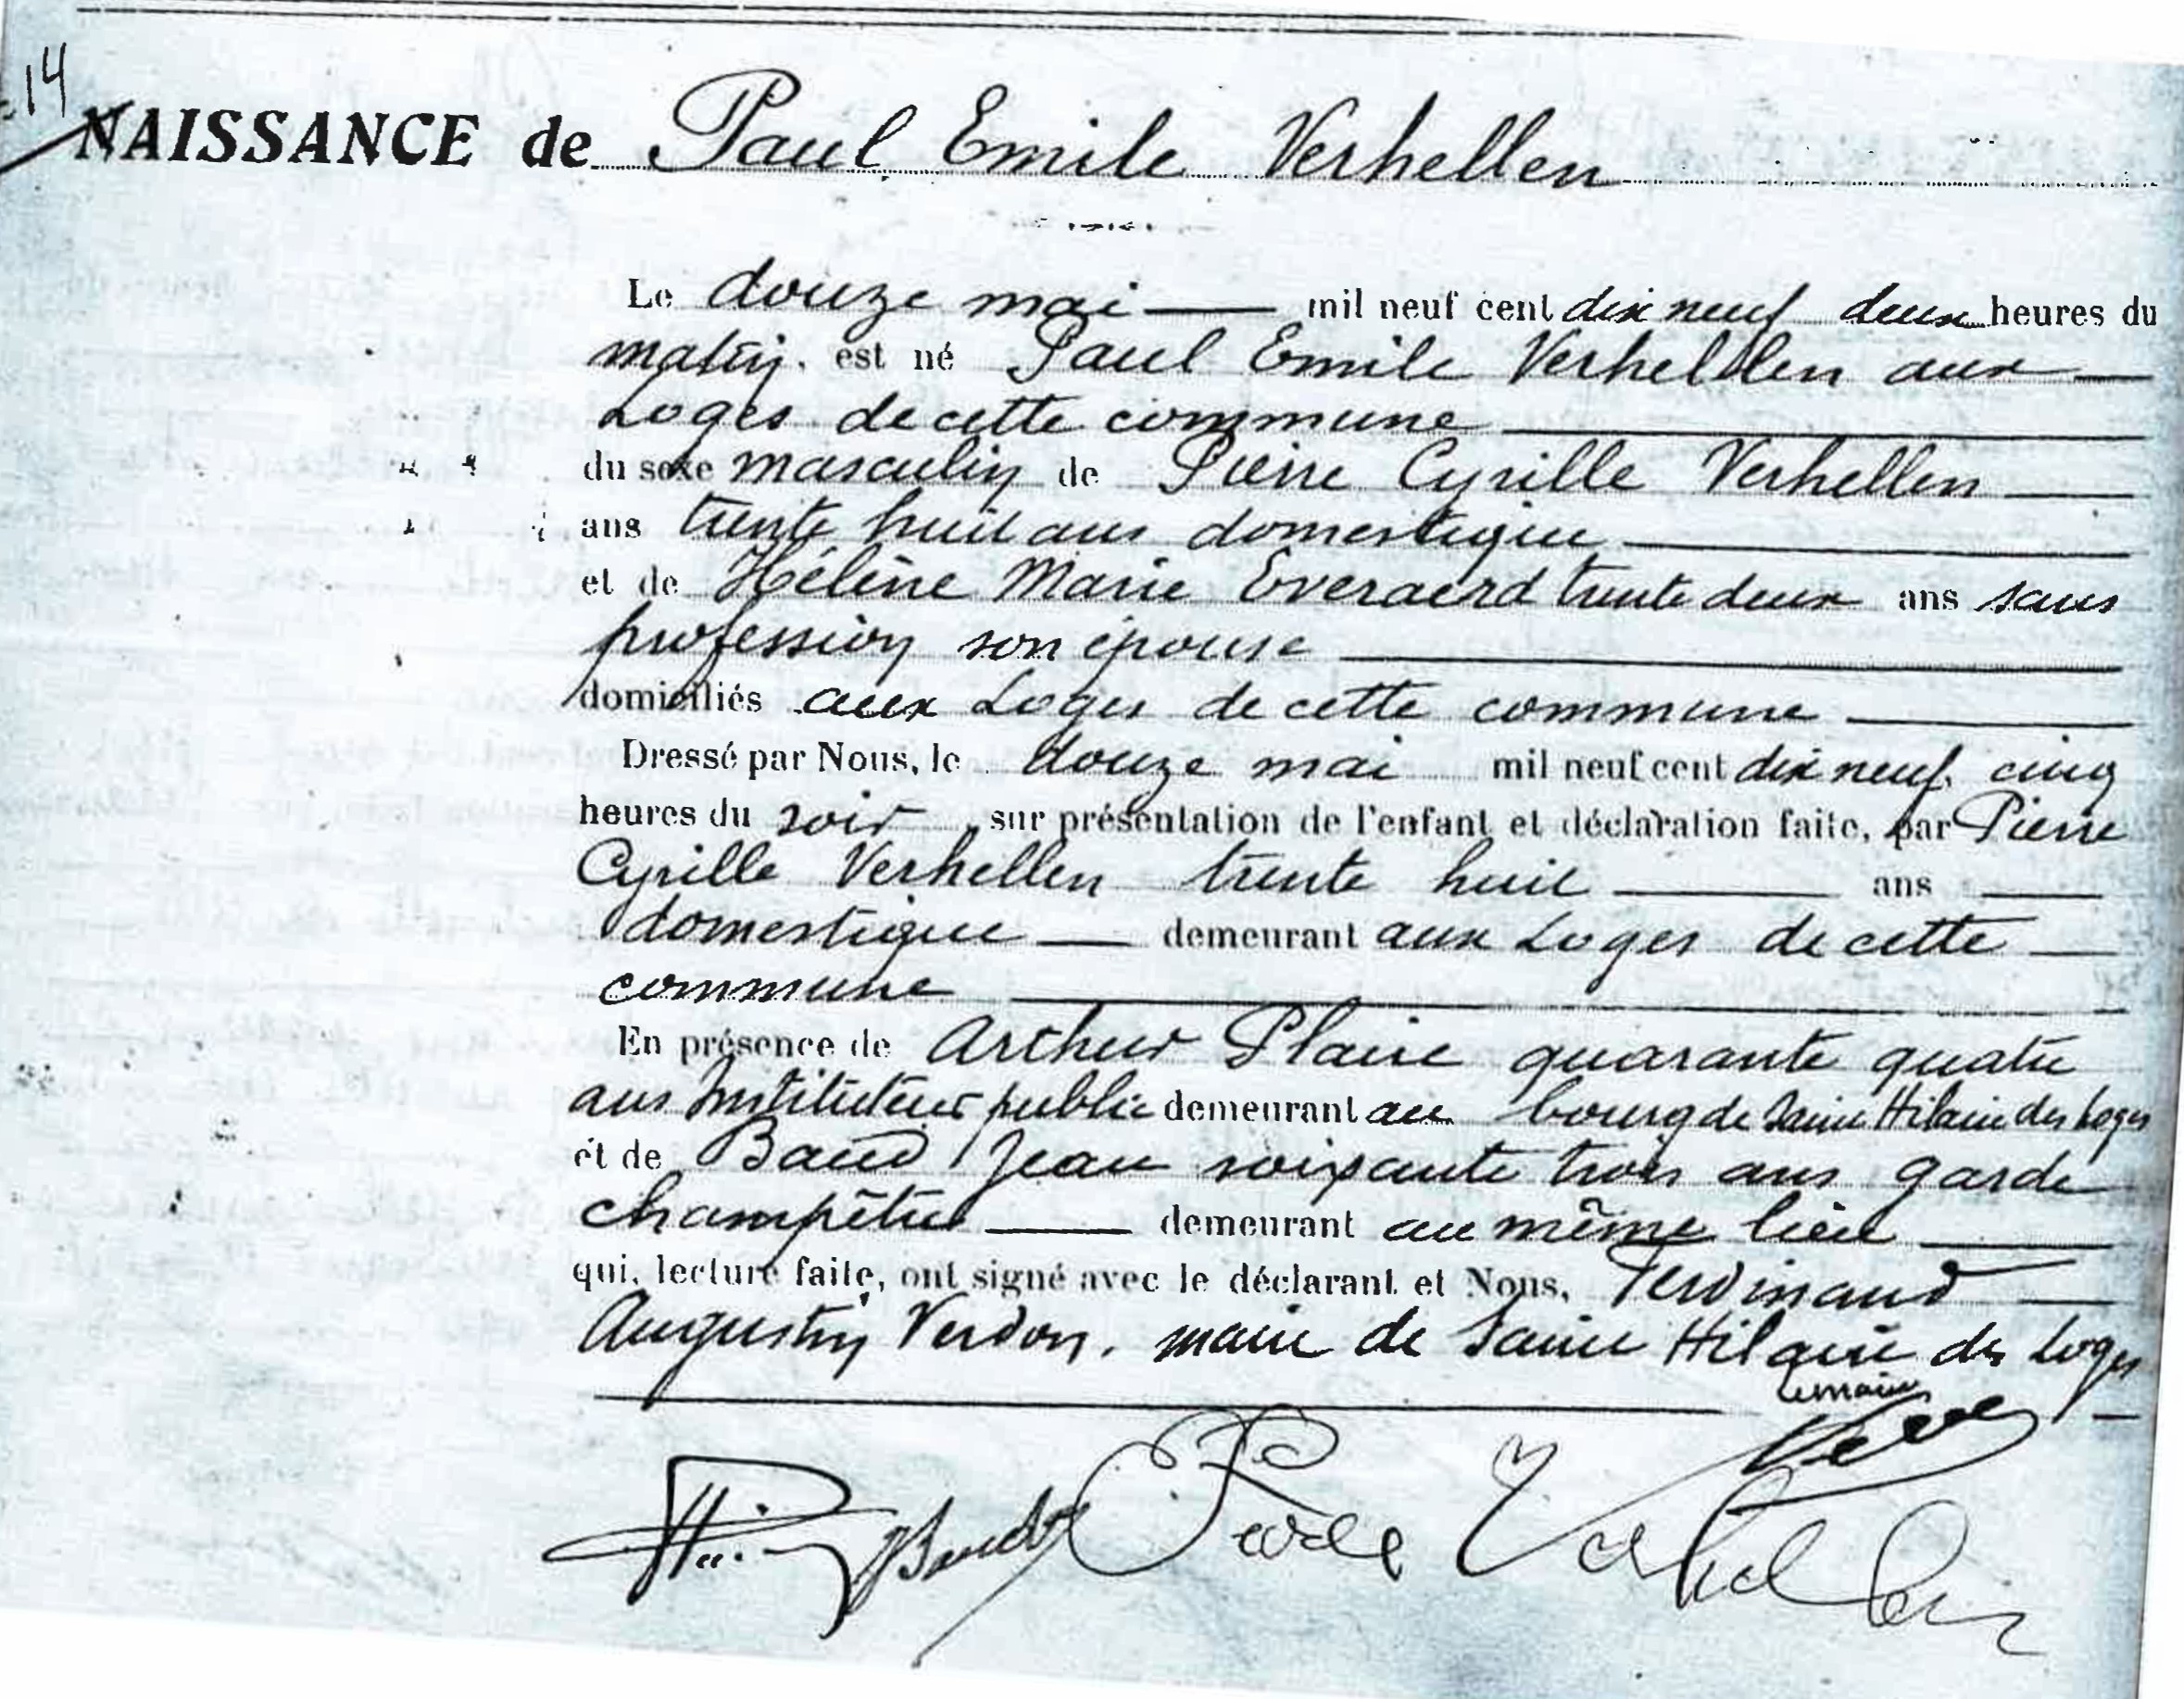 14
NAISSANCE de Paul Emile Verhellen
Le douze mai mil neuf cent dix neuf deux heures du
matin. est né Paul Emile Verhelllen aux
Loges de cette commune
du sexe masculin de Pierre Cyrille Verhellen
ans trente huit ans domestique
et de Hélène Marie Everaerd trente deux ans sans
profession son épouse
domiciliés aux Loges de cette commune
Dressé par Nous, le douze mai mil neuf cent dix neuf, cinq
heures du soir, sur présentation de l'enfant et déclaration faite, par Pierre
Cyrille Verhellen trente huit ans
domestique demeurant aux Loges de cette
commune
En présence de Arthur Plaire quarante quatre
ans Instituteur public demeurant au bourg de Saint Hilaire des Loges
et de Baud Jean soixante trois ans garde
champêtre demeurant au même lieu
qui, lecture faite, ont signé avec le déclarant et Nous, Ferdinand
Augustin Verdon, maire de Saint Hilaire des Loges
Le maire